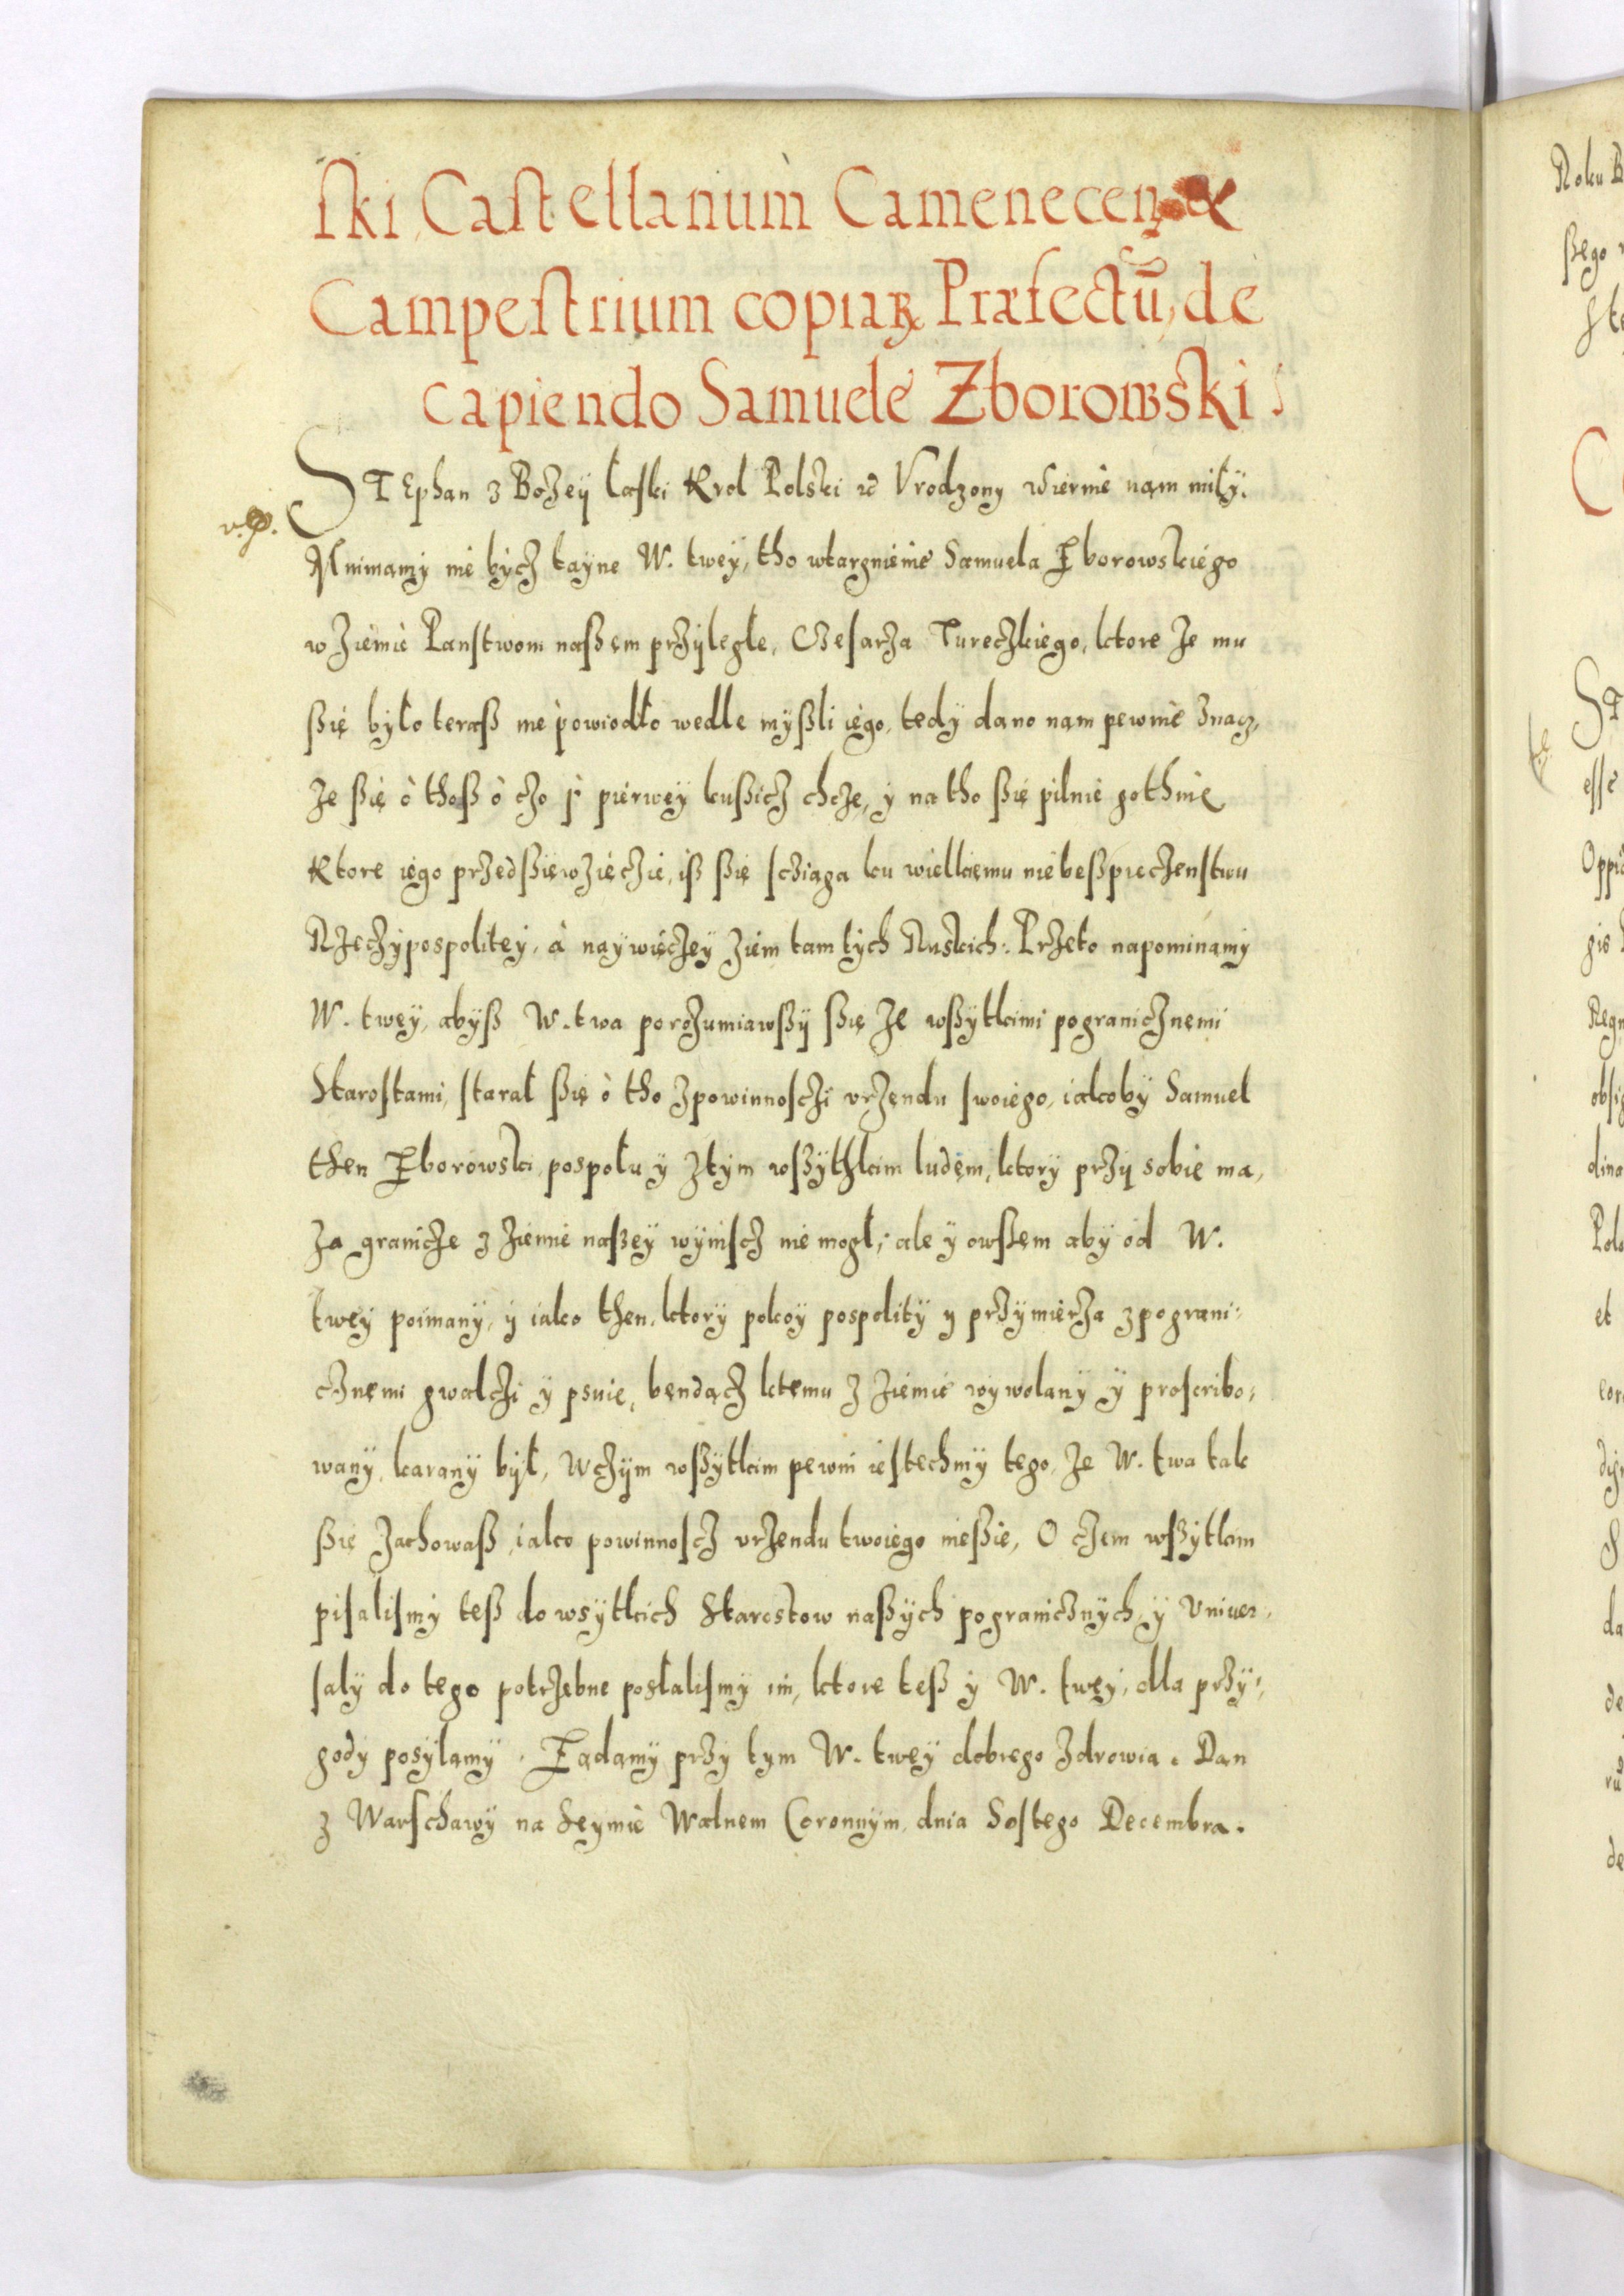 ski, Castellanum Camenecen. &
Campestrium copiaꝝ Præfectū, de
capiendo Samuele Zborowski.
STEphan z Bożey łaski Krol Polski ec Vrodzony wiernie nam miły.
Mnimamy nie bycz tayne W. twey, tho wtargnienie Samuela Zborowskiego
w ziemie Panstwom naßem przyległe, Czesarza Tureczkiego, ktore że mu
ßię było teraß nie powiodło wedle myßli iego, tedy dano nam pewnie znacz,
że ßię o thoß o czo y pierwey kußicz chcze, y na tho ßię pilnie gothuie
Ktore iego przedßięwzięczie, iß ßię scziąga ku wielkiemu niebeßpieczenstwu
Rzeczypospolitey, à naywięczey ziem tamtych Ruskich: Przeto napominamy
W. twey, abyß W. twa porozumiawßy ßię ze wßytkimi pogranicznemi
Starostami, starał ßię o tho zpowinnosczi vrzendu swoiego, iakoby Samuel
then Zborowski, pospołu y ztym wßythkim ludem, ktory przy sobie ma,
za granicze z ziemie naßey wyniscz nie mogł, ale y owßem aby od W.
twey poimany, y iako then, ktory pokoy pospolity y przymierza zpograni=
cznemi gwałczi y psuie, bendącz ktemu z ziemie wywołany y proscribo=
wany, karany był, Wczym wßytkim pewni iestechmy tego, że W. twa tak
ßię zachowaß, iako powinnoscz vrzendu twoiego nießie, O czem wßytkim
pisalismy teß do wsytkich Starostow naßych pogranicznych, y Univer=
sały do tego potrzebne posłalismy im, ktore teß y W. twey, dla przy=
gody posyłamy. Żądamy przy tym W. twey dobrego zdrowia. Dan
z Warschawy na Seymie Walnem Coronnym, dnia Sostego Decembra.